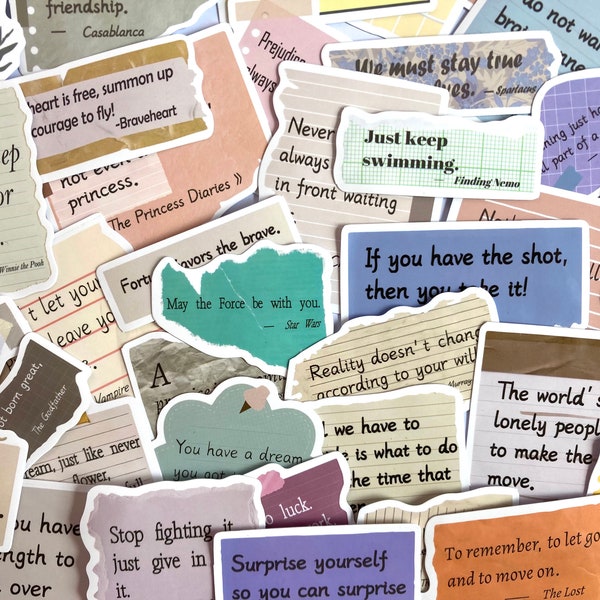 friendship.
— Casablanca
heart is free, summon up
courage to fly!
-Braveheart
not even
princess.
The Princess Diaries 》
Prejudice
always
We must stay true
— Spartacus
do not wan
Never
always
in front waiting
Just keep
swimming.
Finding Nemo
just
part of a
ep
or
Winnie the Pooh
t let you
leave you
Vampire
favors the brave.
May the Force be with you.
— Star Wars
If you have the shot,
then you take it!
Reality doesn't chang
according to your will
Murray
A
born great,
The Godfather
You have a dream
you got
we have to
is what to do
the time that
The world's
lonely people
to make the
move.
eam, just like never
flower,
you have
ength to
over
Stop fighting it
just give in
it.
o luck.
ork
Surprise yourself
so you can surprise
To remember, to let go
and to move on.
— The Lost